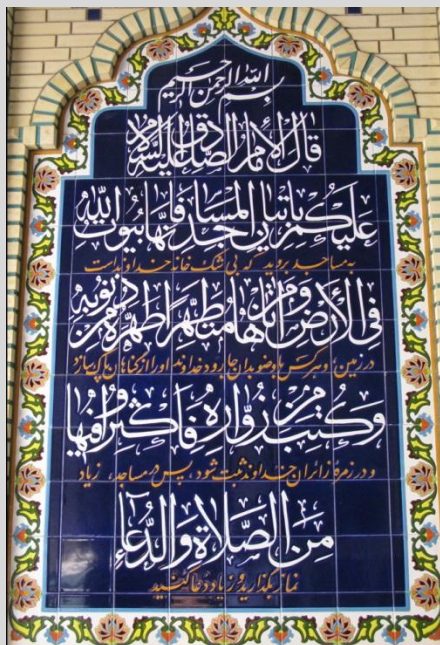 بسم الله الرحمن الرحيم
قال الإمام الصادق عليه السلام
عليكم بإتيان المساجد فإنها بيوت الله
به مساجد بروید که بی شک خانه خداوند است
في الأرض ومن أتاها متطهرا طهره الله من ذنوبه
در زمین، و هر کس با وضو بدان جا رود خداوند او را از گناهان پاک سازد
وكتب من زواره فأكثروا فيها
و در زمرهٔ زائران خداوند ثبت شود، پس در مساجد، زیاد
من الصلاة والدعاء
نماز بگذارید و زیاد دعا کنید